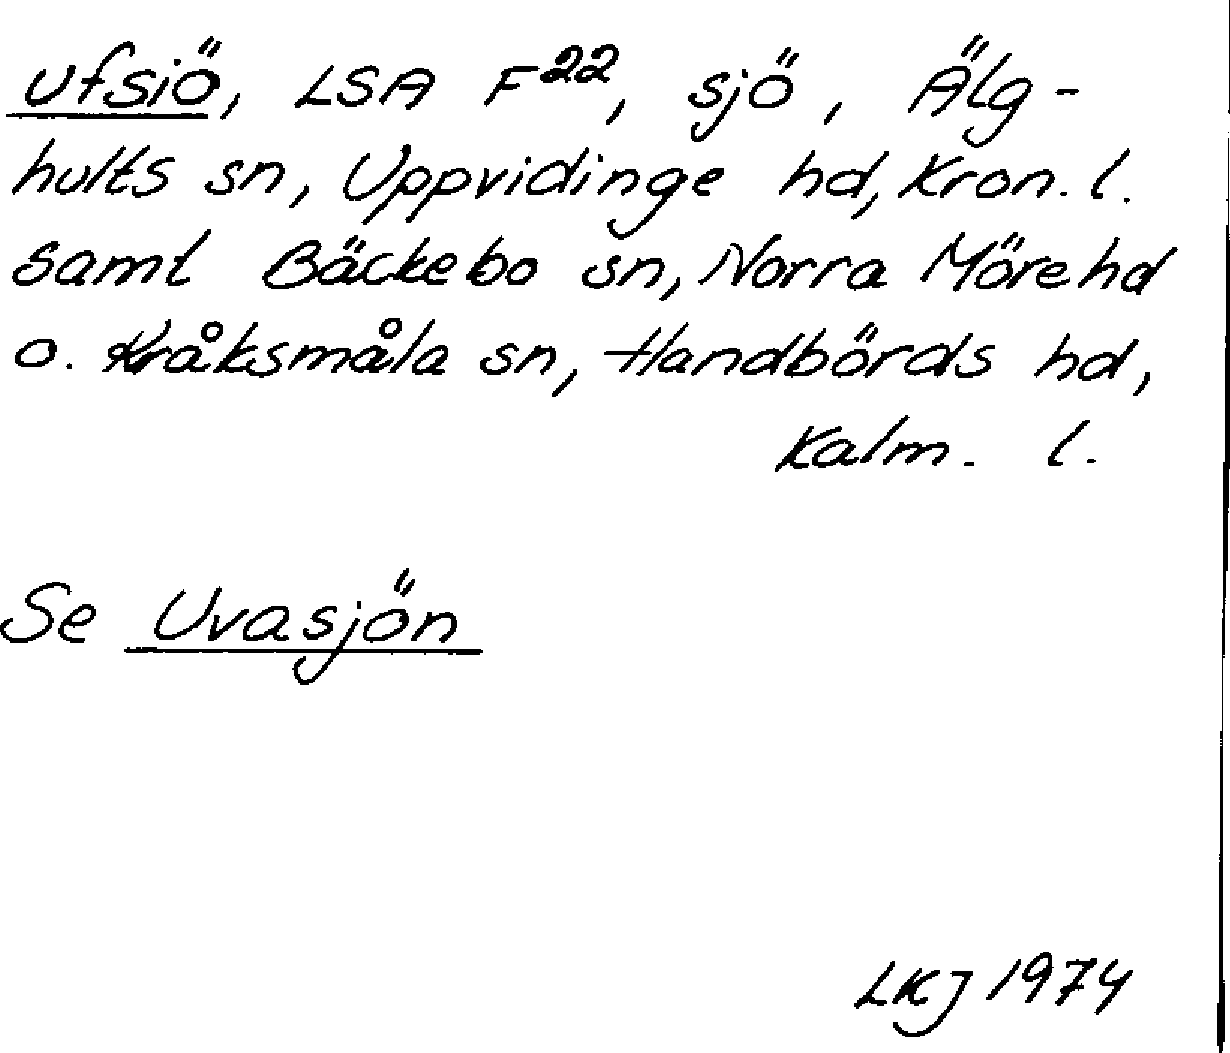 Ufsiö, LSA F22, sjö, Älg-
hults sn, Uppvidinge hd, Kron. l.
samt Bäckebo sn, Norra Möre hd
o. Kråksmåla sn, Handbörds hd,
Kalm. l.
Se Uvasjön
LKJ 1974